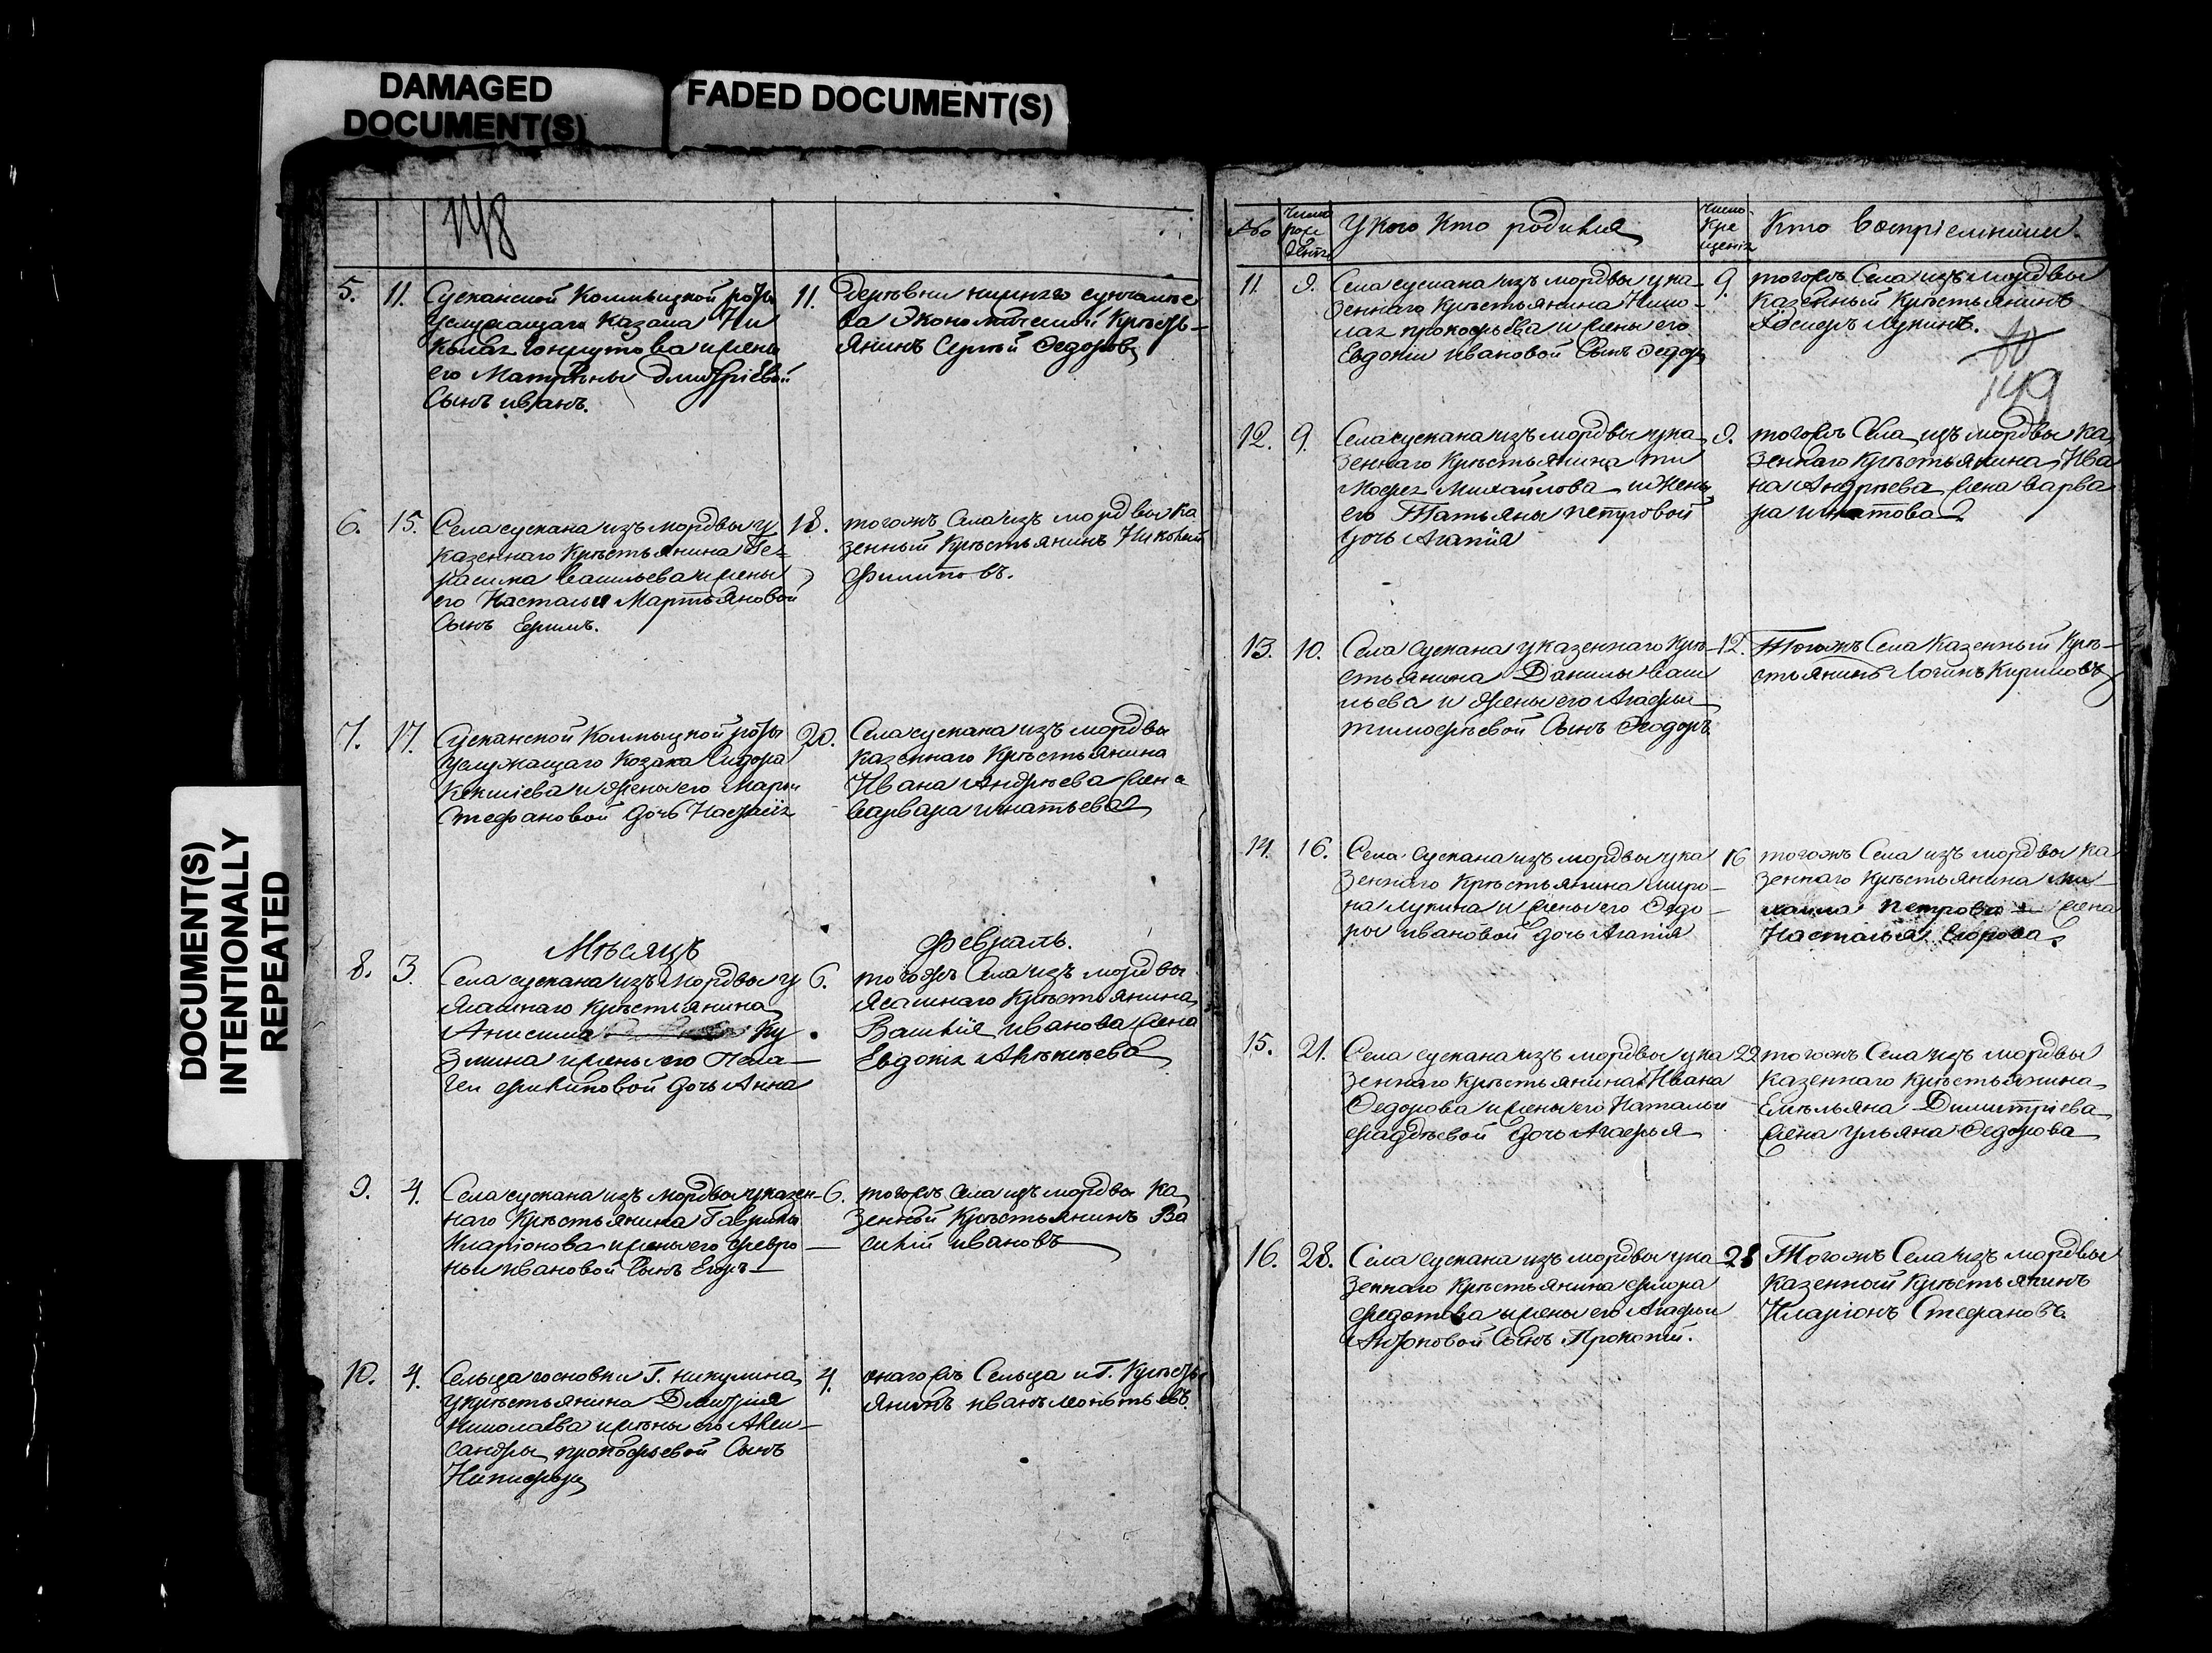 DAMAGED
DOCUMENT(S)
FADED DOCUMENT(S)
DOCUMENT(S)
INTENTIONALLY
REPEATED
148
5. 11. Сусканской Колмыцкой роты
услужащаго Казака Ни
колая и жены
его Матрены Дмитріевой
Сынъ иванъ.
11. Деревни нижняго
ва Экономической Кресть-
янинъ Сергѣй Федоровъ
6. 15. Села сускана изъ мордвы у
казеннаго Крѣстьянина Ге
расима Васильева и жены
его Настасьи Мартьяновой
Сынъ Ефимъ.
18. тогожъ Села изъ мордвы ка
зенный Крѣстьянинъ Николай
Филиповъ.
7. 17. Сусканской Колмыцкой роты
услужащаго Козака Сидора
и жены его Марьи
Стефановой дочь
20. Села сускана изъ мордвы
казеннаго Крѣстьянина
Ивана Андрѣева жена
варвара игнатьева
Мѣсяцъ Февраль.
8. 3. Села сускана изъ Мордвы у
ясашнаго Крѣстьянина
Анисима Ку
змина и жены его Пела-
геи филиповой дочь Анна
6. тогожъ Села изъ мордвы
Ясашнаго Крѣстьянина
Василія иванова жена
Евдокія
9. 4. Села сускана изъ мордвы у казен-
наго Крѣстьянина Гаврилы
Иларіонова и жены его февро-
ньи ивановой Сынъ Егоръ
6. тогожъ Села изъ мордвы ка
зенный Крѣстьянинъ Ва
силій ивановъ
10. 4. Сельца сосновки Г. никулина
у крѣстьянина Дмитрія
николаева и жены его Алек-
сандры прокофьевой Сынъ
Никифоръ
4. онагожъ Сельца и Г. Крѣсть
янинъ иванъ леонтьевъ.
№ Число рож денія У кого Кто родился Число Кре щенія Кто воспріемники.
11. 9. Села сускана изъ мордвы у ка-
зеннаго Крѣстьянина Нико-
лая прокофьева и жены его
Евдокіи ивановой Сынъ Федоръ
9. тогожъ Села изъ мордвы
казенный Крѣстьянинъ
Лукинъ.
149
12. 9. Села сускана изъ мордвы у ка
зеннаго Крѣстьянина ти
мофея Михайлова и жены
его Татьяны петровой
дочь Агапія
9. тогожъ Села изъ мордвы ка
зеннаго Крѣстьянина Ива
на Андрѣева жена варва
ра игнатова
13. 10. Села Сускана у казеннаго Крѣ-
стьянина Данилы васи
льева и жены его Агафьи
тимофѣевой Сынъ Феодоръ
12. Тогожъ Села Казенный Крѣ-
стьянинъ Логинъ Кириловъ
14. 16. Села Сускана изъ мордвы у ка
зеннаго Крѣстьянина миро-
на лукина и жены его Федо-
ры ивановой дочь Агапія
16 тогожъ Села изъ мордвы ка
зеннаго Крѣстьянина ми-
хаила Петрова жена
Настасья Егорова
15. 21. Села сускана изъ мордвы у ка
зеннаго Крѣстьянина Ивана
Федорова и жены его Натальи
фадѣевой дочь Агафья
22 тогожъ Села изъ мордвы
казеннаго Крѣстьянина
Емѣльяна Димитріева
жена ульяна Федорова
16. 28. Села сускана изъ мордвы у ка
зеннаго Крѣстьянина флора
федотова и жены его Агафьи
Антоновой Сынъ Прокопій.
28 Тогожъ Села изъ мордвы
казенной Крѣстьянинъ
Иларіонъ Стефановъ.